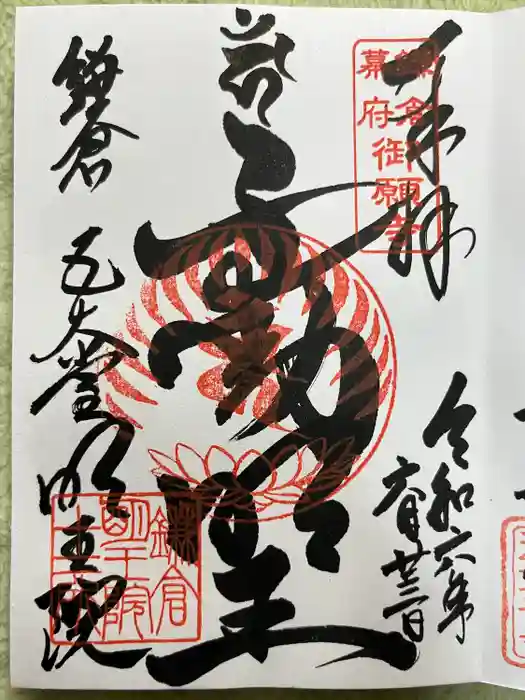 奉拝
鎌倉
幕府御願寺
令和六年
六月廿三日
不動明王
鎌倉 五大堂 明王院
鎌倉